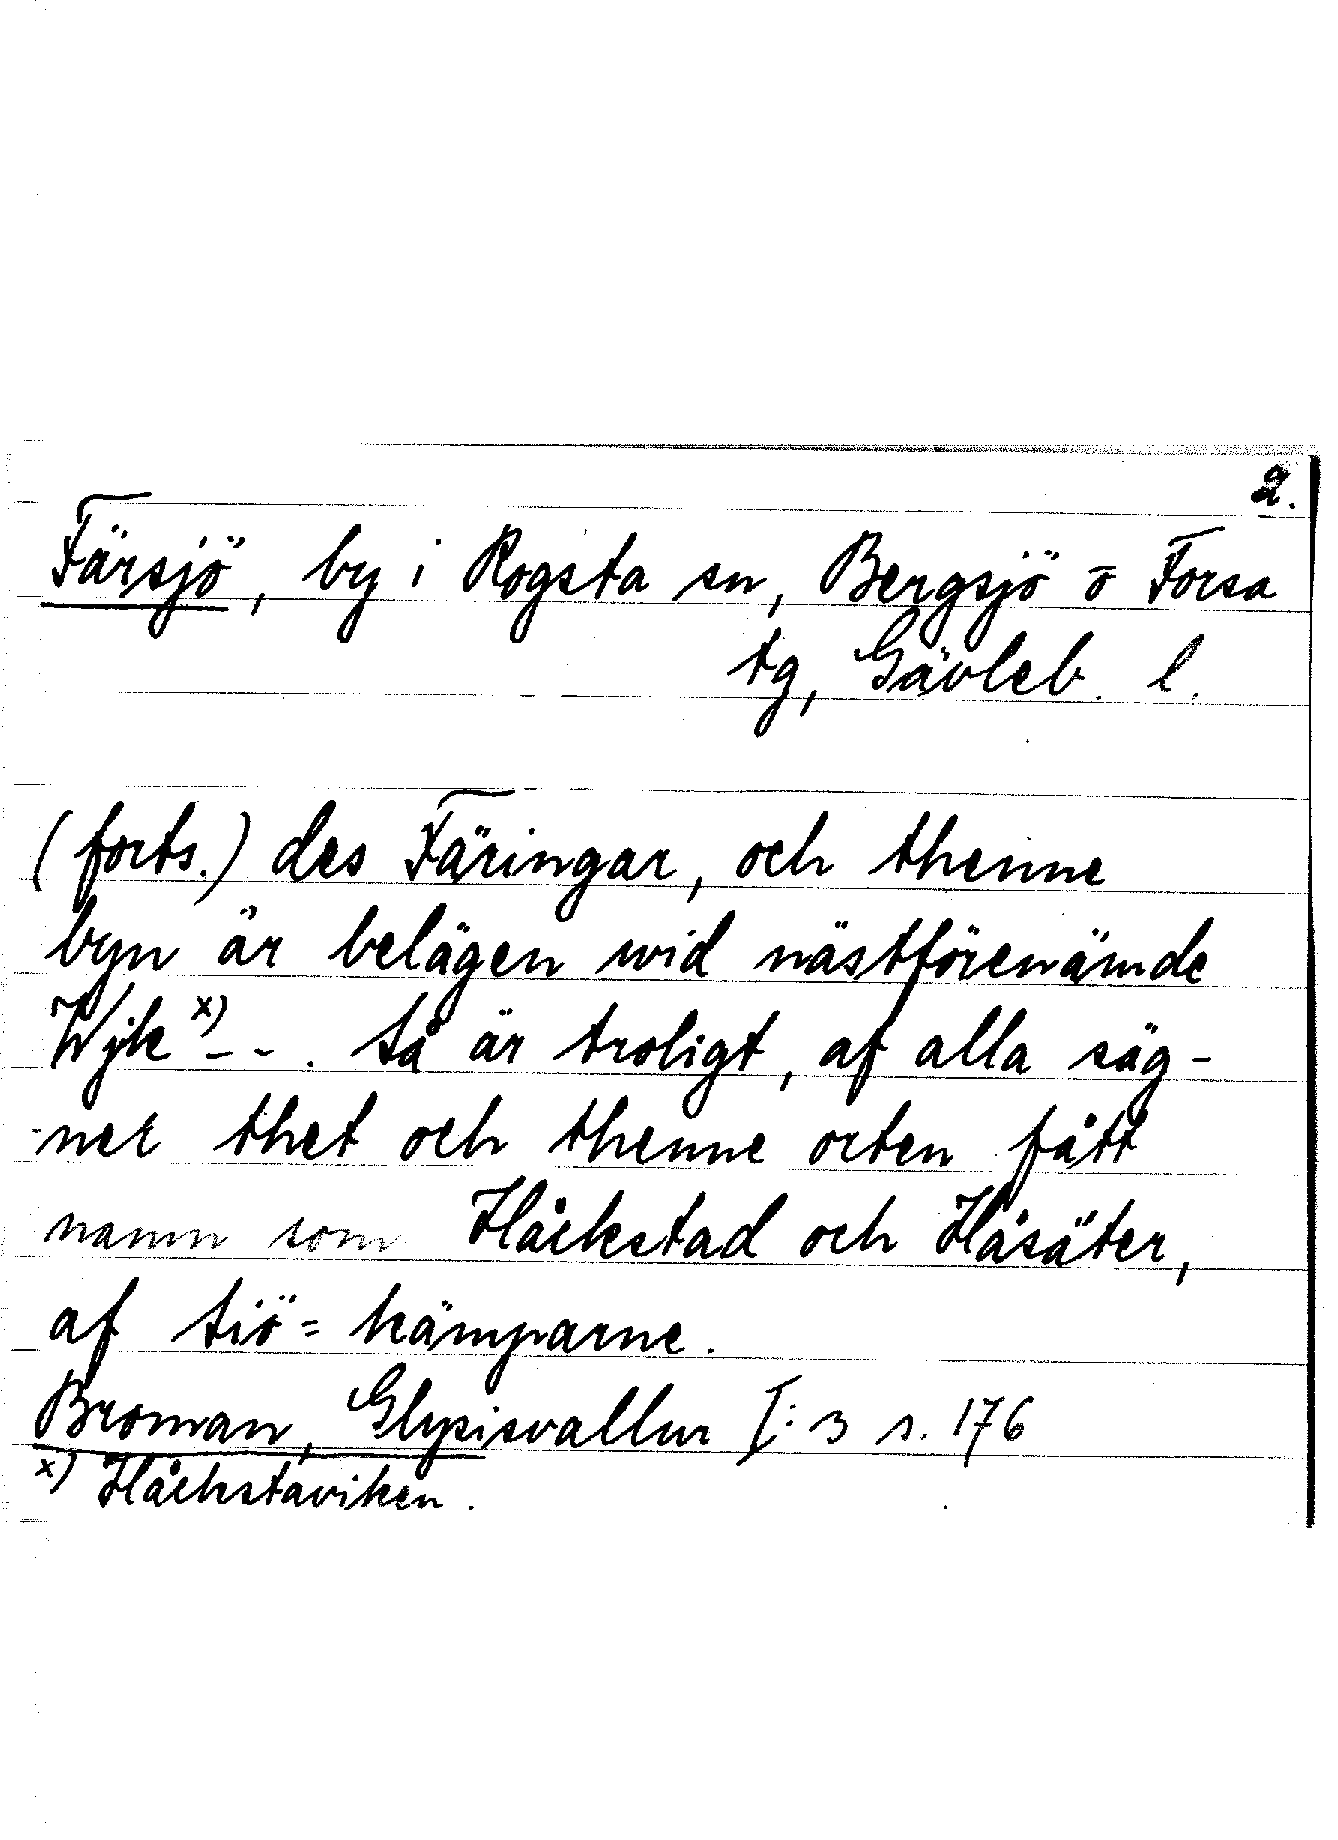 2.
Färsjö, by i Rogsta sn, Bergsjö o Forsa
tg, Gävleb. l.
(forts.) des Färingar, och thenne
byn är belägen wid nästförenämde
Wijk x) - - . Så är troligt, af alla säg-
-ner thet och thenne orten fått
namn som Håckstad och Håsäter,
af Siö=kämparne.
Broman, Glysisvallur I:3 s. 176
x) Håckstaviken.